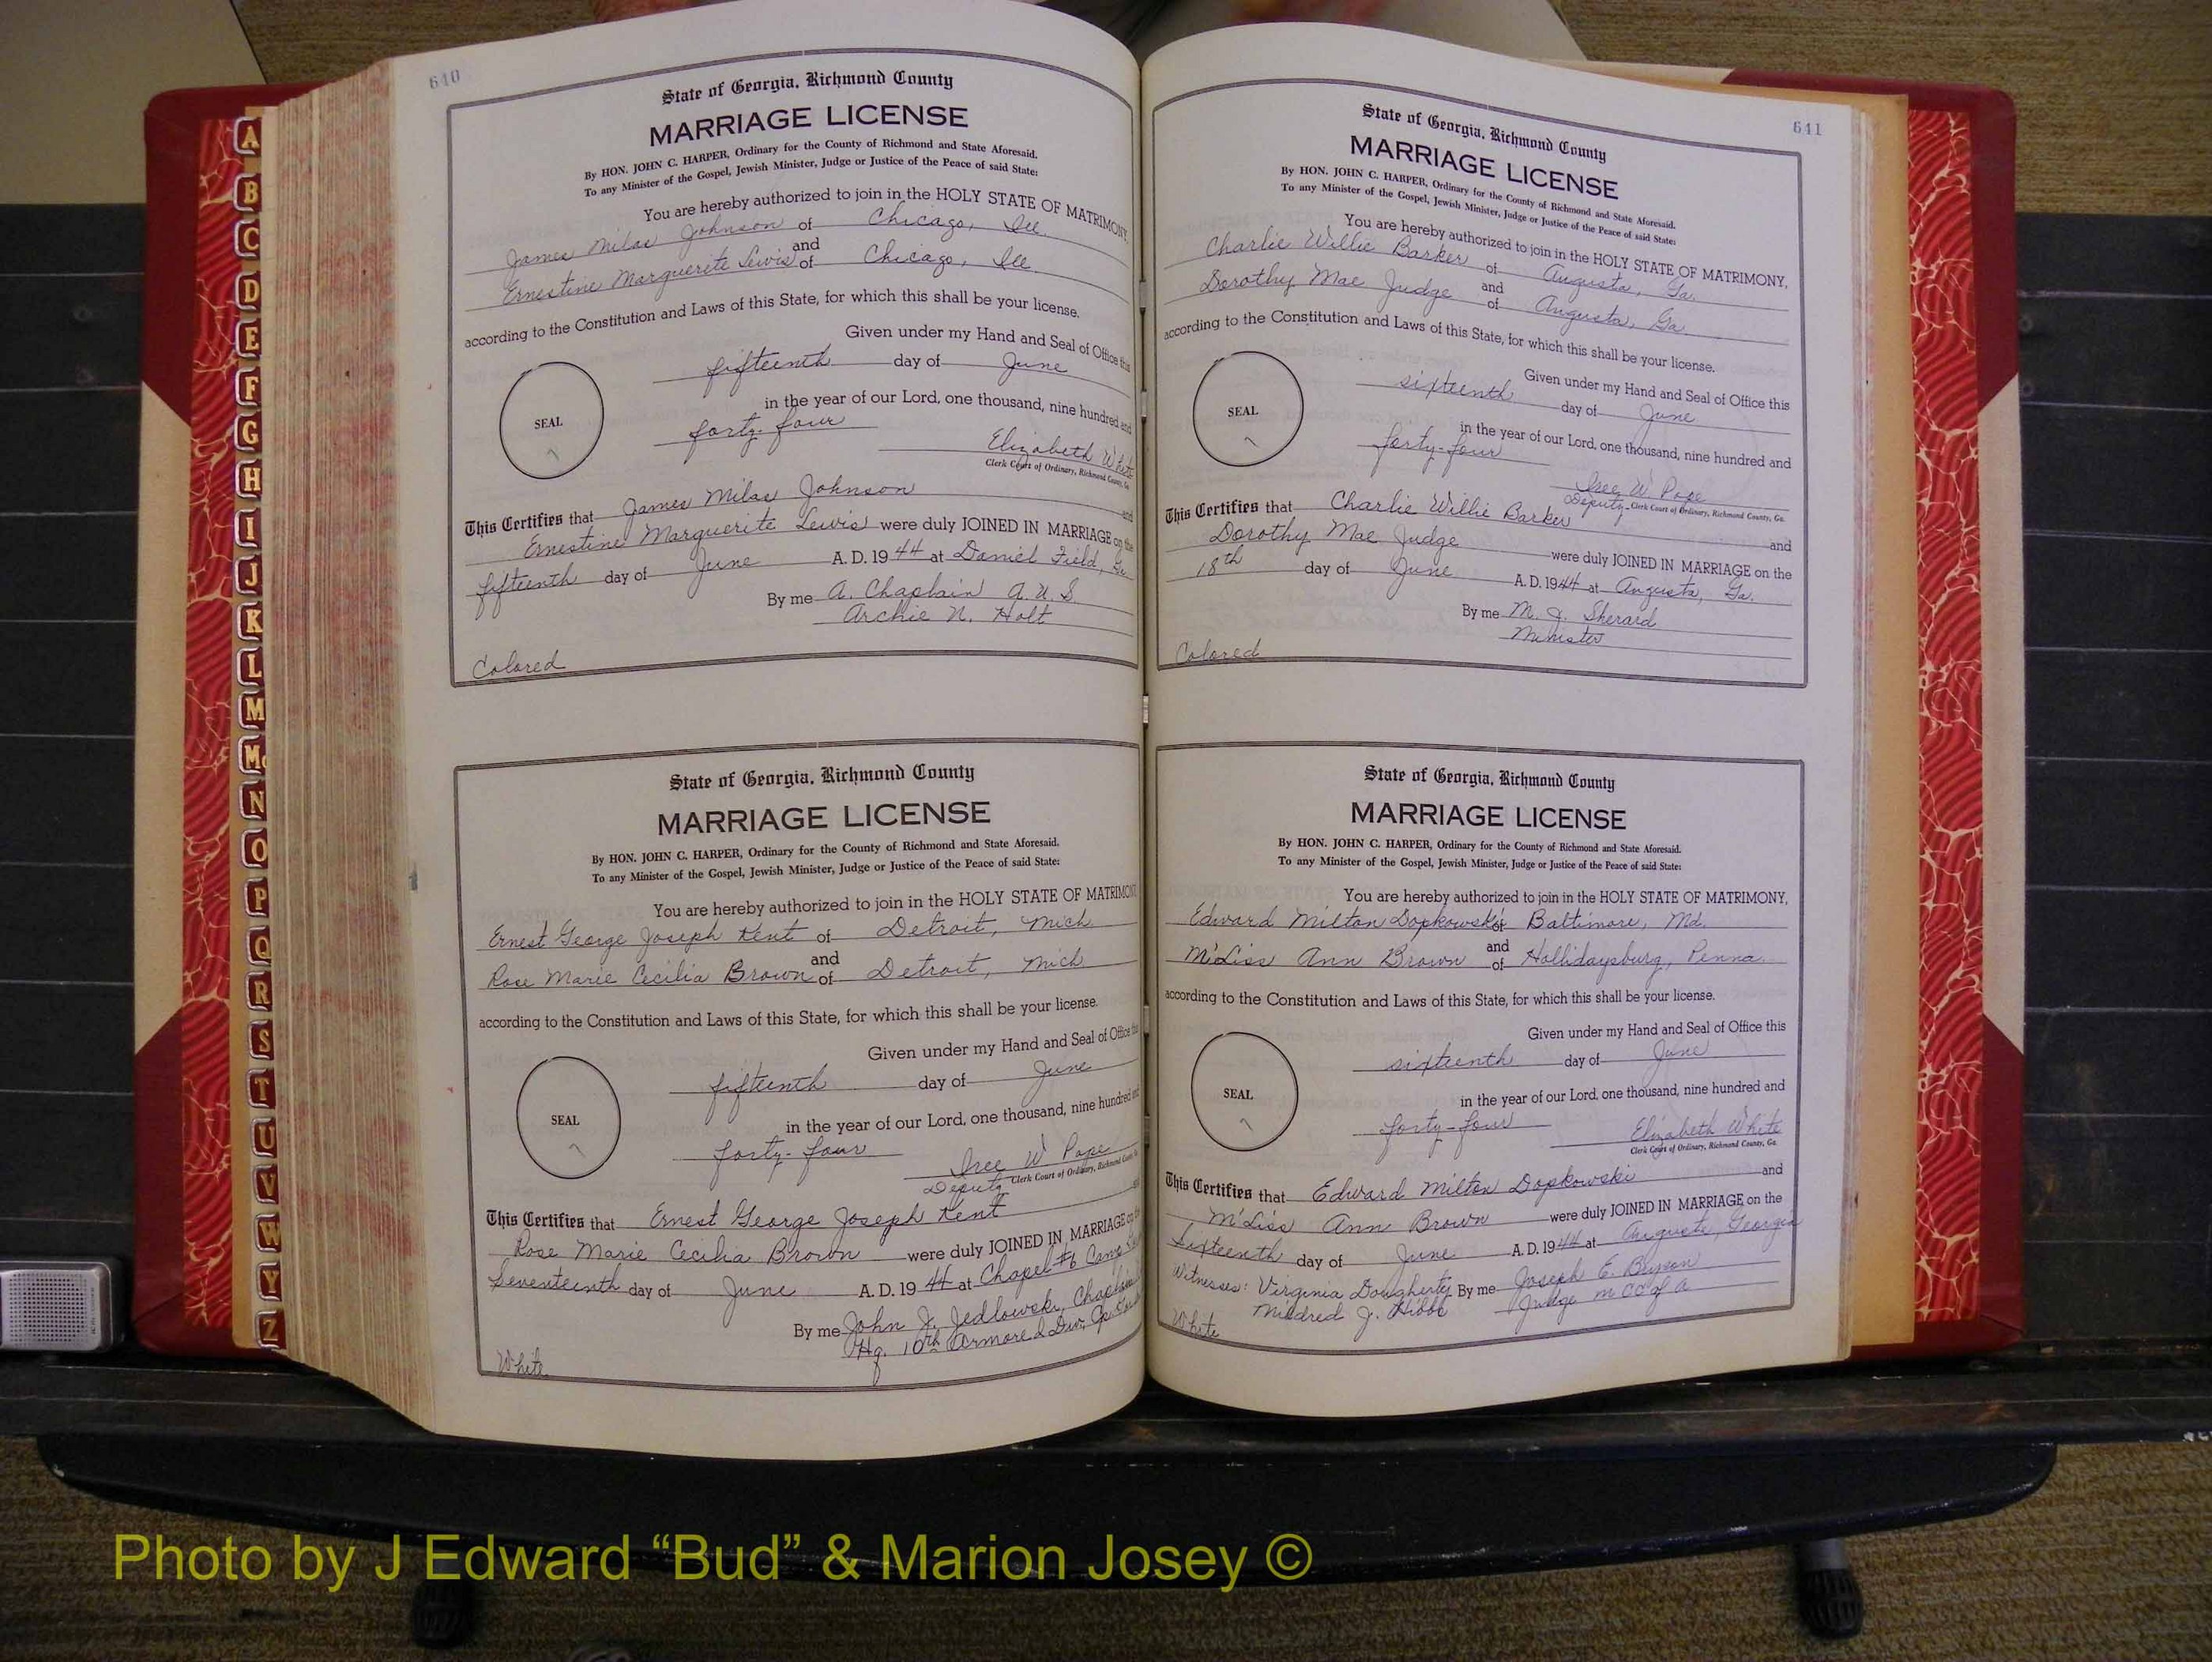 A
B
C
D
E
F
G
H
I
J
K
L
M
Mc
N
O
P
Q
R
S
T
U
V
W
Y
Z
640
State of Georgia, Richmond County
MARRIAGE LICENSE
By HON. JOHN C. HARPER, Ordinary for the County of Richmond and State Aforesaid.
To any Minister of the Gospel, Jewish Minister, Judge or Justice of the Peace of said State:
You are hereby authorized to join in the HOLY STATE OF MATRIMONY,
James Milas Johnson of Chicago, Ill.
and
Ernestine Marguerite Lewis of Chicago, Ill.
according to the Constitution and Laws of this State, for which this shall be your license.
Given under my Hand and Seal of Office this
fifteenth day of June
SEAL
in the year of our Lord, one thousand, nine hundred and
forty-four
Elizabeth White
Clerk Court of Ordinary, Richmond County, Ga.
This Certifies that James Milas Johnson and
Ernestine Marguerite Lewis were duly JOINED IN MARRIAGE on the
fifteenth day of June A. D. 1944 at Daniel Field, Ga
By me A. Chaplain A. U. S.
Archie N. Holt
Colored
State of Georgia, Richmond County
MARRIAGE LICENSE
By HON. JOHN C. HARPER, Ordinary for the County of Richmond and State Aforesaid.
To any Minister of the Gospel, Jewish Minister, Judge or Justice of the Peace of said State:
You are hereby authorized to join in the HOLY STATE OF MATRIMON
Ernest George Joseph Kent of Detroit, Mich.
and
Rose Marie Cecilia Brown of Detroit, Mich.
according to the Constitution and Laws of this State, for which this shall be your license.
Given under my Hand and Seal of Office this
fifteenth day of June
SEAL
in the year of our Lord, one thousand, nine hundred and
forty-four
Inee W Pope
Deputy Clerk Court of Ordinary, Richmond County
This Certifies that Ernest George Joseph Kent
Rose Marie Cecilia Brown were duly JOINED IN MARRIAGE on the
Seventeenth day of June A. D. 1944 at Chapel #6 Camp
By me John J. Jedlowski, Chaplain
Hq. 10th Armored Div.
White
641
State of Georgia, Richmond County
MARRIAGE LICENSE
By HON. JOHN C. HARPER, Ordinary for the County of Richmond and State Aforesaid.
To any Minister of the Gospel, Jewish Minister, Judge or Justice of the Peace of said State:
You are hereby authorized to join in the HOLY STATE OF MATRIMONY,
Charlie Willie Barker of Augusta, Ga.
and
Dorothy Mae Judge of Augusta, Ga
according to the Constitution and Laws of this State, for which this shall be your license.
Given under my Hand and Seal of Office this
sixteenth day of June
SEAL
in the year of our Lord, one thousand, nine hundred and
forty-four
Inee W Pope
Deputy Clerk Court of Ordinary, Richmond County, Ga.
This Certifies that Charlie Willie Barker and
Dorothy Mae Judge were duly JOINED IN MARRIAGE on the
18th day of June A. D. 1944 at Augusta, Ga.
By me M. J. Sherard
Minister
Colored
State of Georgia, Richmond County
MARRIAGE LICENSE
By HON. JOHN C. HARPER, Ordinary for the County of Richmond and State Aforesaid.
To any Minister of the Gospel, Jewish Minister, Judge or Justice of the Peace of said State:
You are hereby authorized to join in the HOLY STATE OF MATRIMONY,
Edward Milton Dopkowski of Baltimore, Md.
and
M'Liss Ann Brown of Hollidaysburg, Penna.
according to the Constitution and Laws of this State, for which this shall be your license.
Given under my Hand and Seal of Office this
sixteenth day of June
SEAL
in the year of our Lord, one thousand, nine hundred and
forty-four
Elizabeth White
Clerk Court of Ordinary, Richmond County, Ga.
This Certifies that Edward Milton Dopkowski and
M'Liss Ann Brown were duly JOINED IN MARRIAGE on the
Sixteenth day of June A. D. 1944 at Augusta, Georgia
Witnesses: Virginia Dougherty By me Joseph E. Bryson
Mildred J. Hibbs Judge m CC of a
White
Photo by J Edward “Bud” & Marion Josey ©